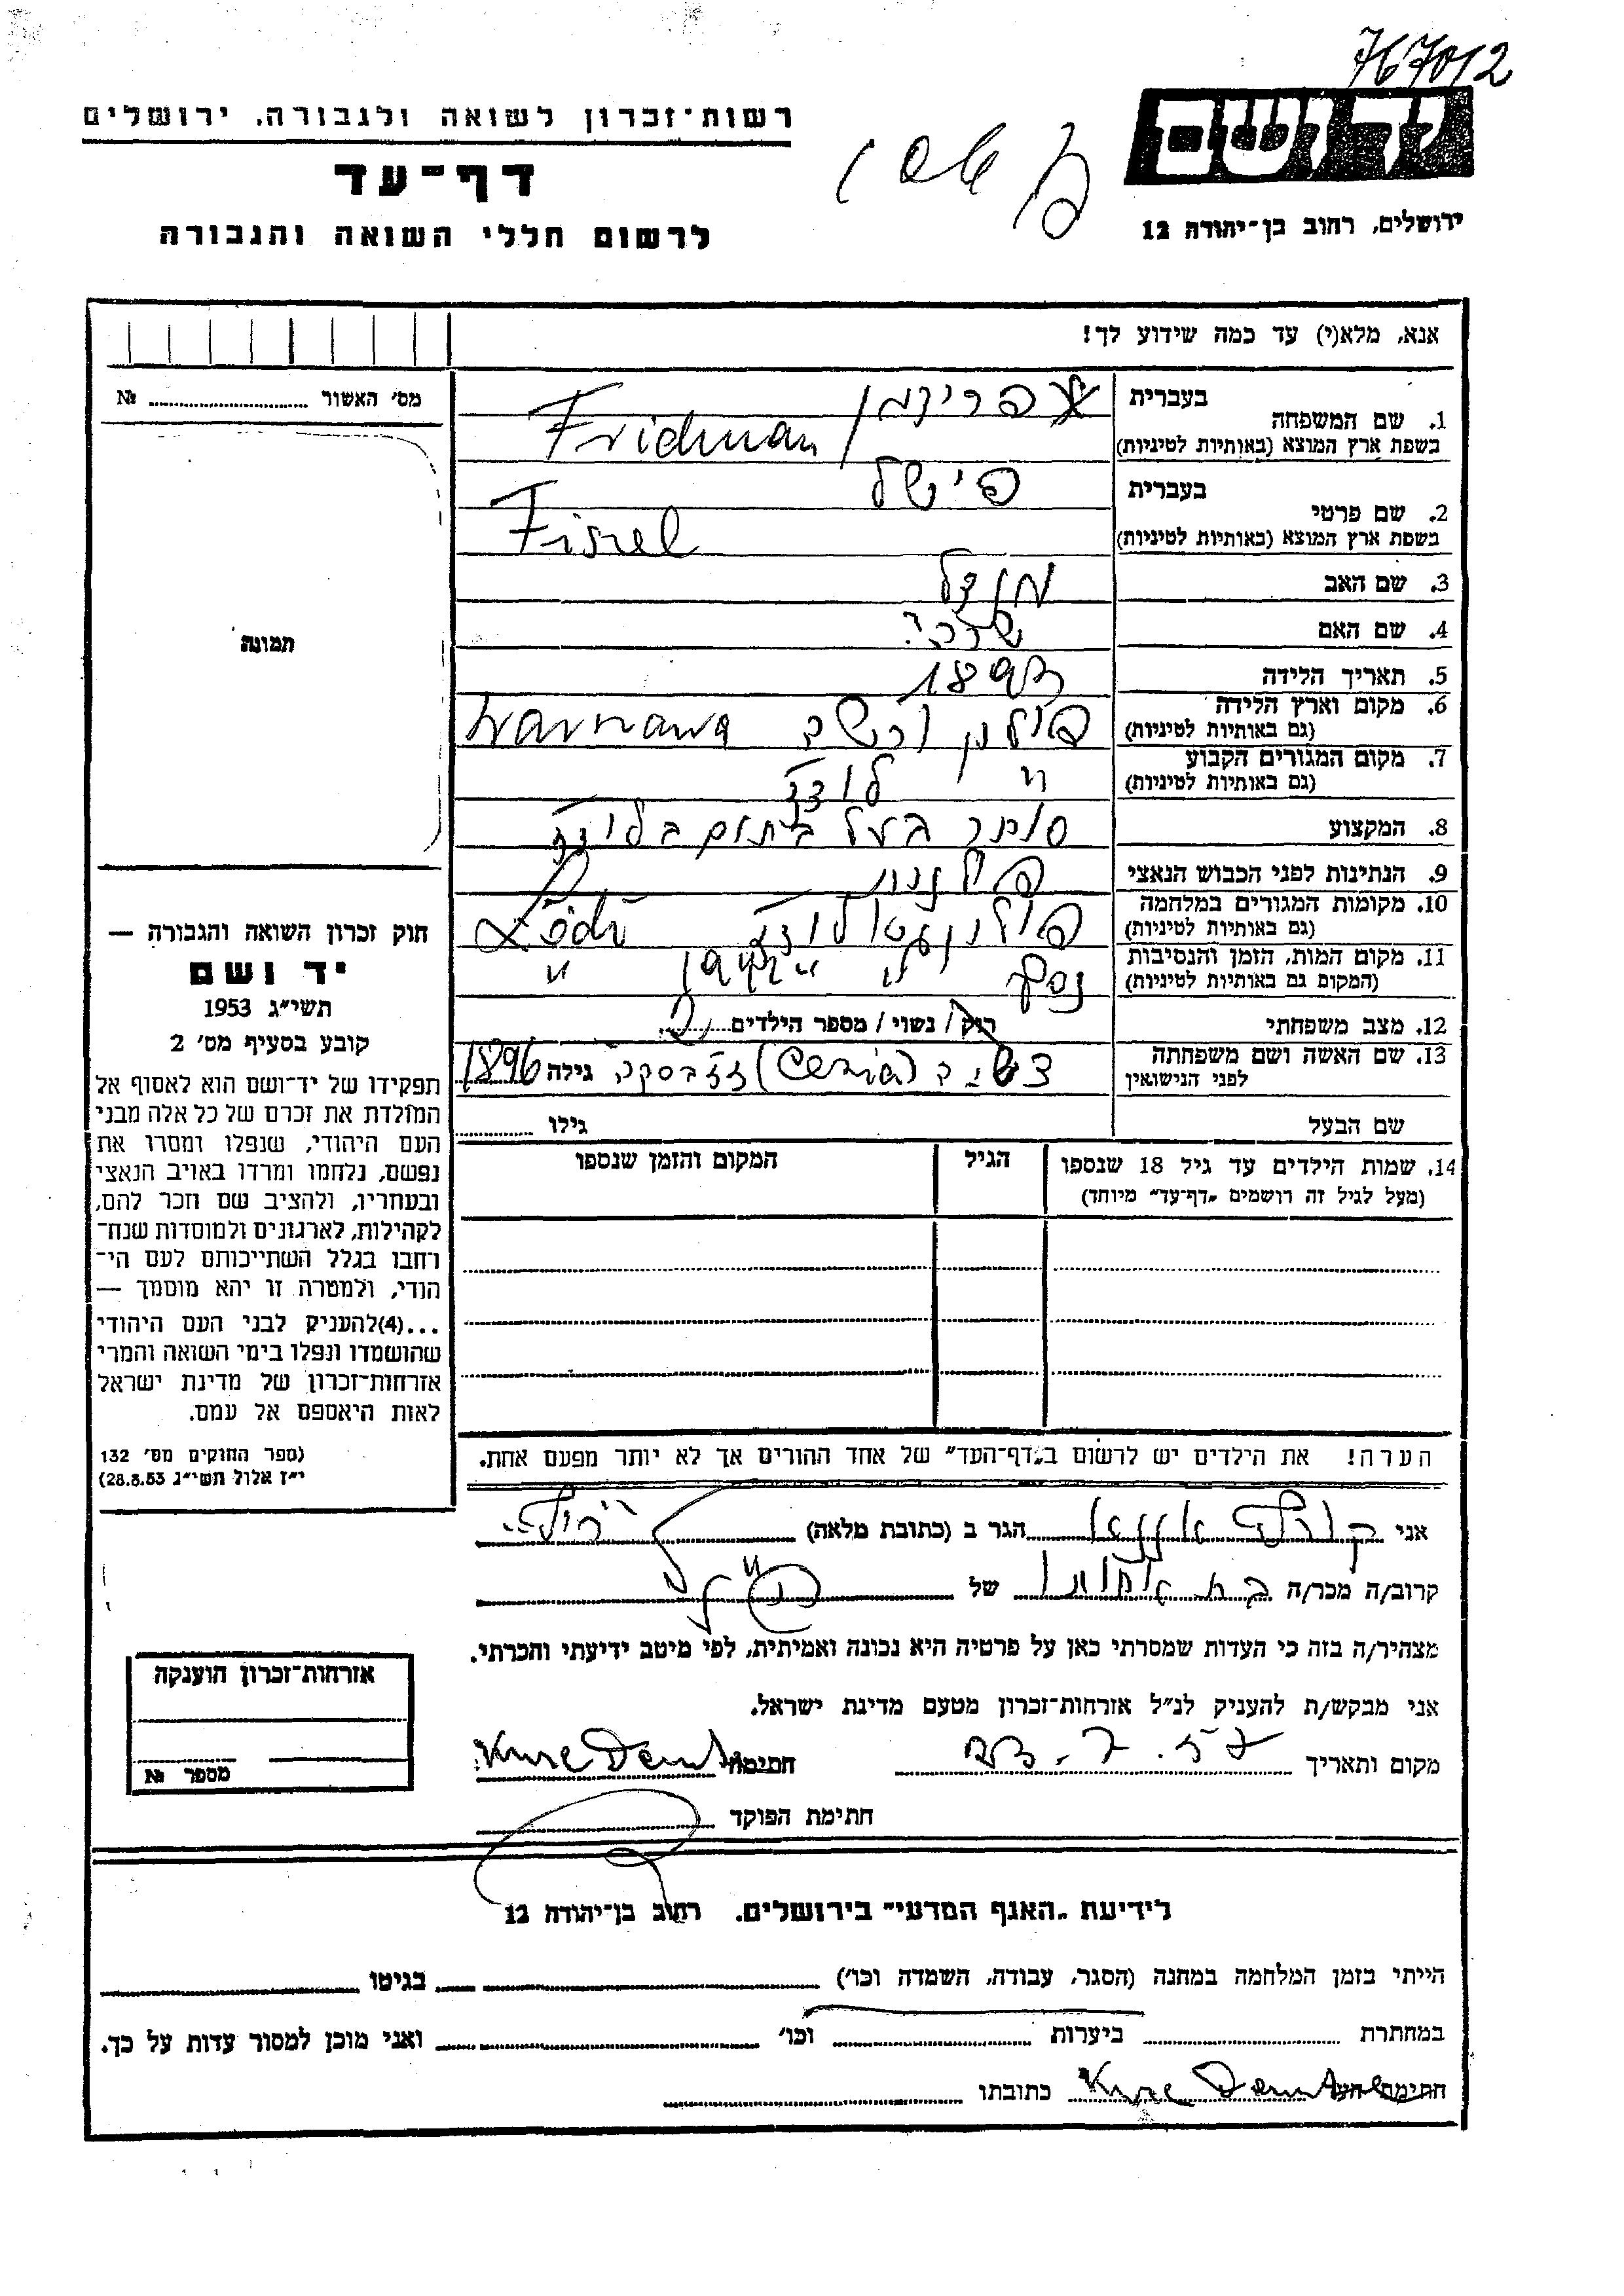 767012
יד ושם
רשות-זכרון לשואה ולגבורה, ירושלים
דף-עד
לרשום חללי השואה והגבורה
ירושלים, רחוב בן-יהודה 12
אנא, מלא(י) עד כמה שידוע לך!
מס׳ האשור № 
תמונה
חוק זכרון השואה והגבורה —
יד ושם
תשי״ג 1953
קובע בסעיף מס׳ 2
תפקידו של יד-ושם הוא לאסוף אל
המולדת את זכרם של כל אלה מבני
העם היהודי, שנפלו ומסרו את
נפשם, נלחמו ומרדו באויב הנאצי
ובעוזריו, ולהציב שם וזכר להם,
לקהילות, לארגונים ולמוסדות שנח-
רבו בגלל השתייכותם לעם הי-
הודי, ולמטרה זו יהא מוסמך —
...(4)להעניק לבני העם היהודי
שהושמדו ונפלו בימי השואה והמרי
אזרחות-זכרון של מדינת ישראל
לאות היאספם אל עמם.
(ספר החוקים מס׳ 132
י״ז אלול תשי״ג 28.8.53)
1. שם המשפחה בעברית פרידמן
בשפת ארץ המוצא (באותיות לטיניות) Fridman
2. שם פרטי בעברית פישל
בשפת ארץ המוצא (באותיות לטיניות) Fiszel
3. שם האב מנדל
4. שם האם
5. תאריך הלידה 1893
6. מקום וארץ הלידה פולין ורשה Warszawa
(גם באותיות לטיניות)
7. מקום המגורים הקבוע " לודז׳
(גם באותיות לטיניות)
8. המקצוע סוחר בעל בלודז׳
9. הנתינות לפני הכבוש הנאצי פולנית
10. מקומות המגורים במלחמה פולין גטו לודז׳ Łódź
(גם באותיות לטיניות)
11. מקום המות, הזמן והנסיבות נספה "
(המקום גם באותיות לטיניות)
12. מצב משפחתי רוק / נשוי / מספר הילדים 2
13. שם האשה ושם משפחתה (Cesia) גילה 1896
לפני הנישואין
שם הבעל גילו
14. שמות הילדים עד גיל 18 שנספו הגיל המקום והזמן שנספו
(מעל לגיל זה רושמים „דף-עד״ מיוחד)
הערה! את הילדים יש לרשום ב„דף-העד״ של אחד ההורים אך לא יותר מפעם אחת.
אני הגר ב (כתובת מלאה)
קרוב/ה מכר/ה בת אחותו של פישל
מצהיר/ה בזה כי העדות שמסרתי כאן על פרטיה היא נכונה ואמיתית, לפי מיטב ידיעתי והכרתי.
אני מבקש/ת להעניק לנ״ל אזרחות-זכרון מטעם מדינת ישראל.
מקום ותאריך 23.7.57 חתימה
חתימת הפוקד
אזרחות-זכרון הוענקה
מספר №
לידיעת „האגף המדעי״ בירושלים. רחוב בן-יהודה 12
הייתי בזמן המלחמה במחנה (הסגר, עבודה, השמדה וכו׳) בגיטו
במחתרת ביערות וכו׳ ואני מוכן למסור עדות על כך.
חתימת העד כתובתו